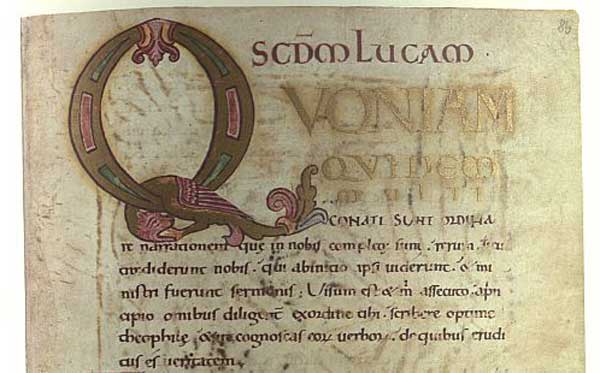 SCDM LUCAM
QVONIAM
QVIDEM
CONATI SUNT ORDINA
re narrationem que in nobis complete sunt rerum
diderunt nobis · qui abinitio ipsi viderunt · & mi
nistri fuerunt sermonis; Visum est & m assecuto apri
cipio omnibus diligent exordine tibi scribere optime
theophile cognoscas eor verbor · de quibus erudi
tus es veritatem